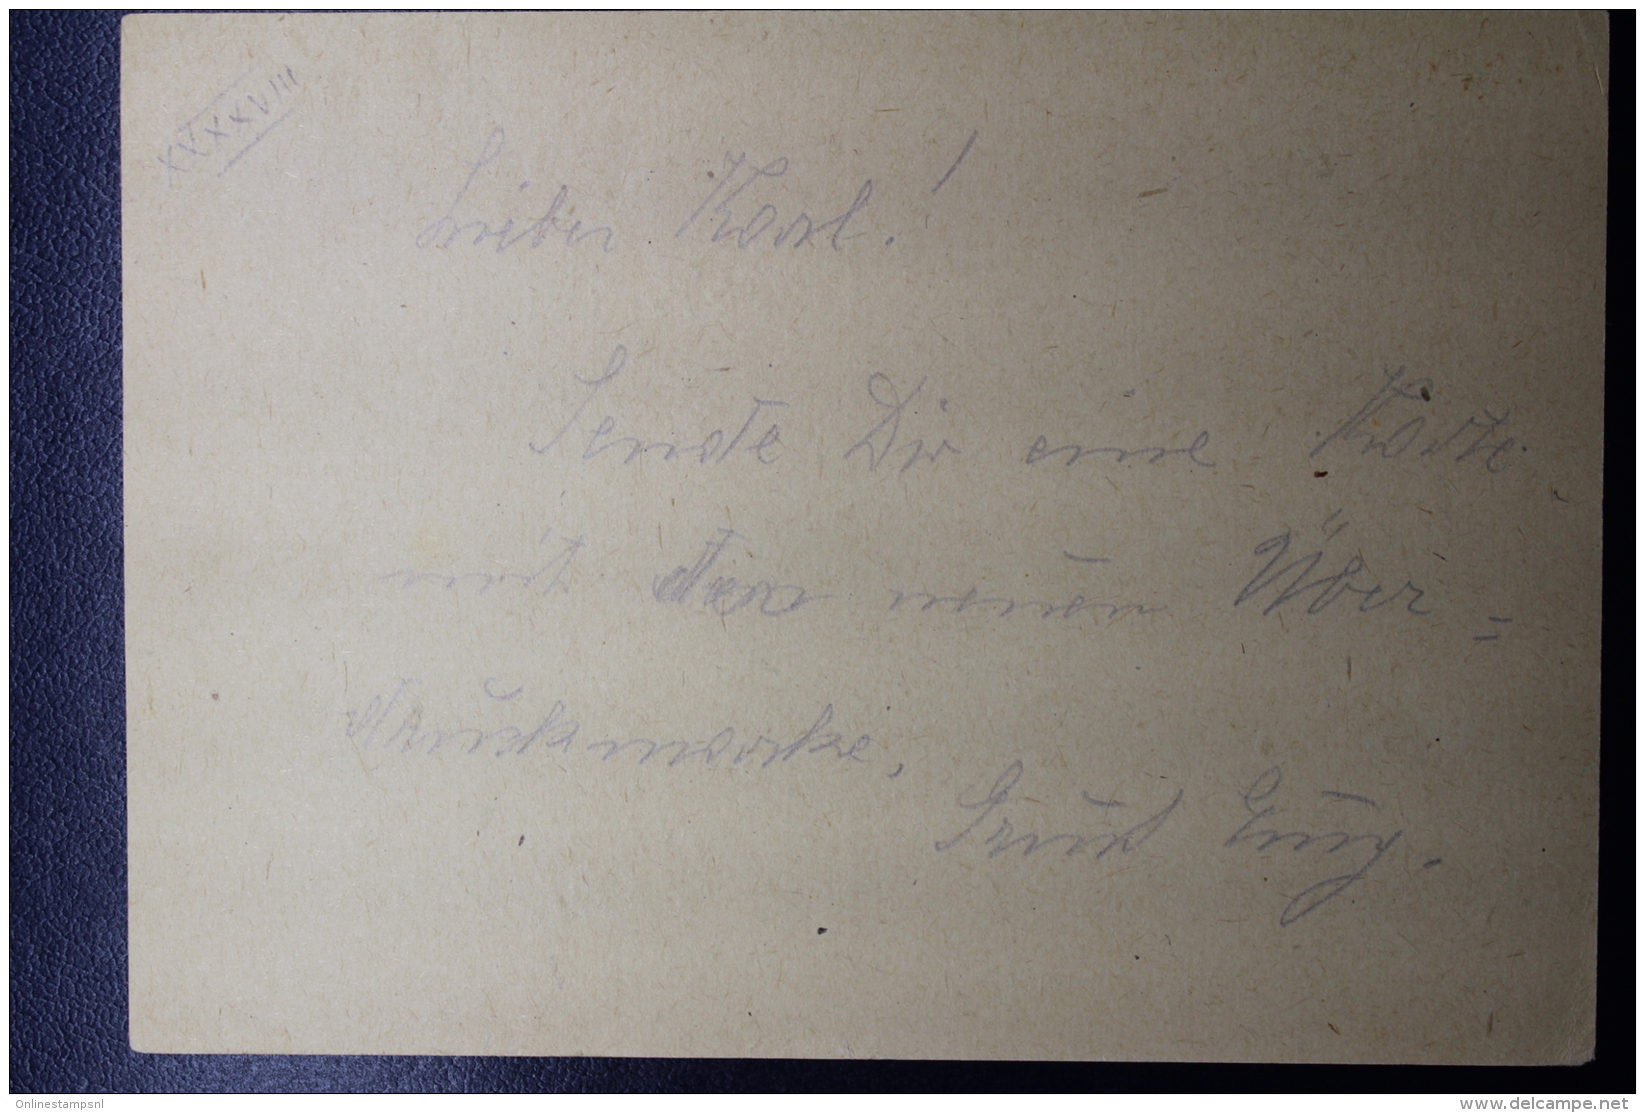 XXXXVIII
Lieber Karl!
Sende Dir eine Karte
mit den neuen Über=
druckmarke.
Gruß
Onlinestampsnl
www.delcampe.net